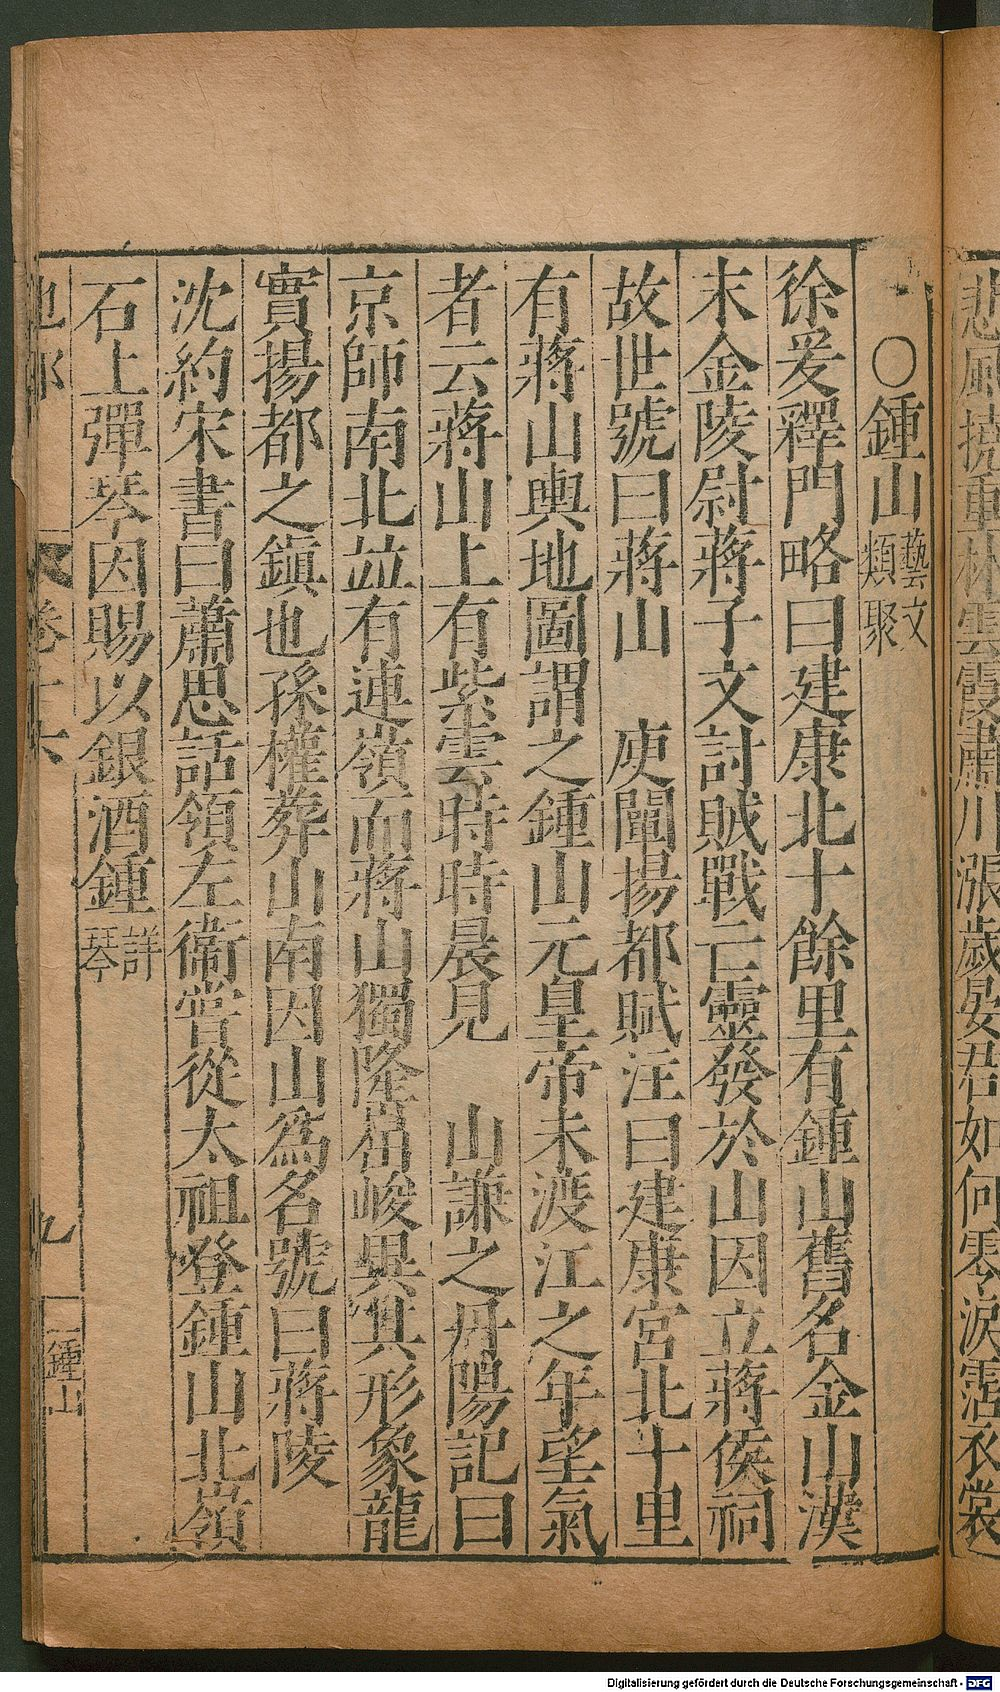 悲風撓重林雲霞肅川漲歲晏君如何零淚霑衣裳
○鍾山藝文類聚
徐爰釋門略曰建康北十餘里有鍾山舊名金山漢
末金陵尉蔣子文討賊戰亡靈發於山因立蔣侯祠
故世號曰蔣山 庾闡揚都賦注曰建康宮北十里
有蔣山輿地圖謂之鍾山元皇帝未渡江之年望氣
者云蔣山上有紫雲時時晨見 山謙之丹陽記曰
京師南北並有連嶺而蔣山獨隆崫峻異其形象龍
實揚都之鎮也孫權葬山南因山為名號曰蔣陵
沈約宋書曰蕭思話領左衞嘗從太祖登鍾山北嶺
石上彈琴因賜以銀酒鍾詳琴
地部 卷二六 九 鍾山
Digitalisierung gefördert durch die Deutsche Forschungsgemeinschaft - DFG